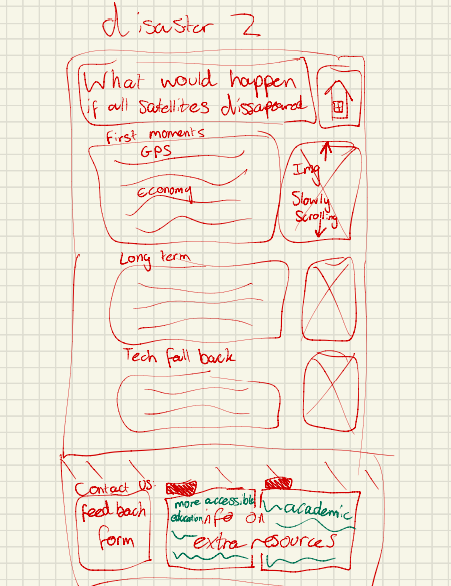 disaster 2
What would happen
if all satellites dissapeared
First moments
GPS
Economy
Img
Slowly
Scrolling
Long term
Tech fall back
Contact Us:
feed back
form
more accessible
education
info on
extra resources
academic